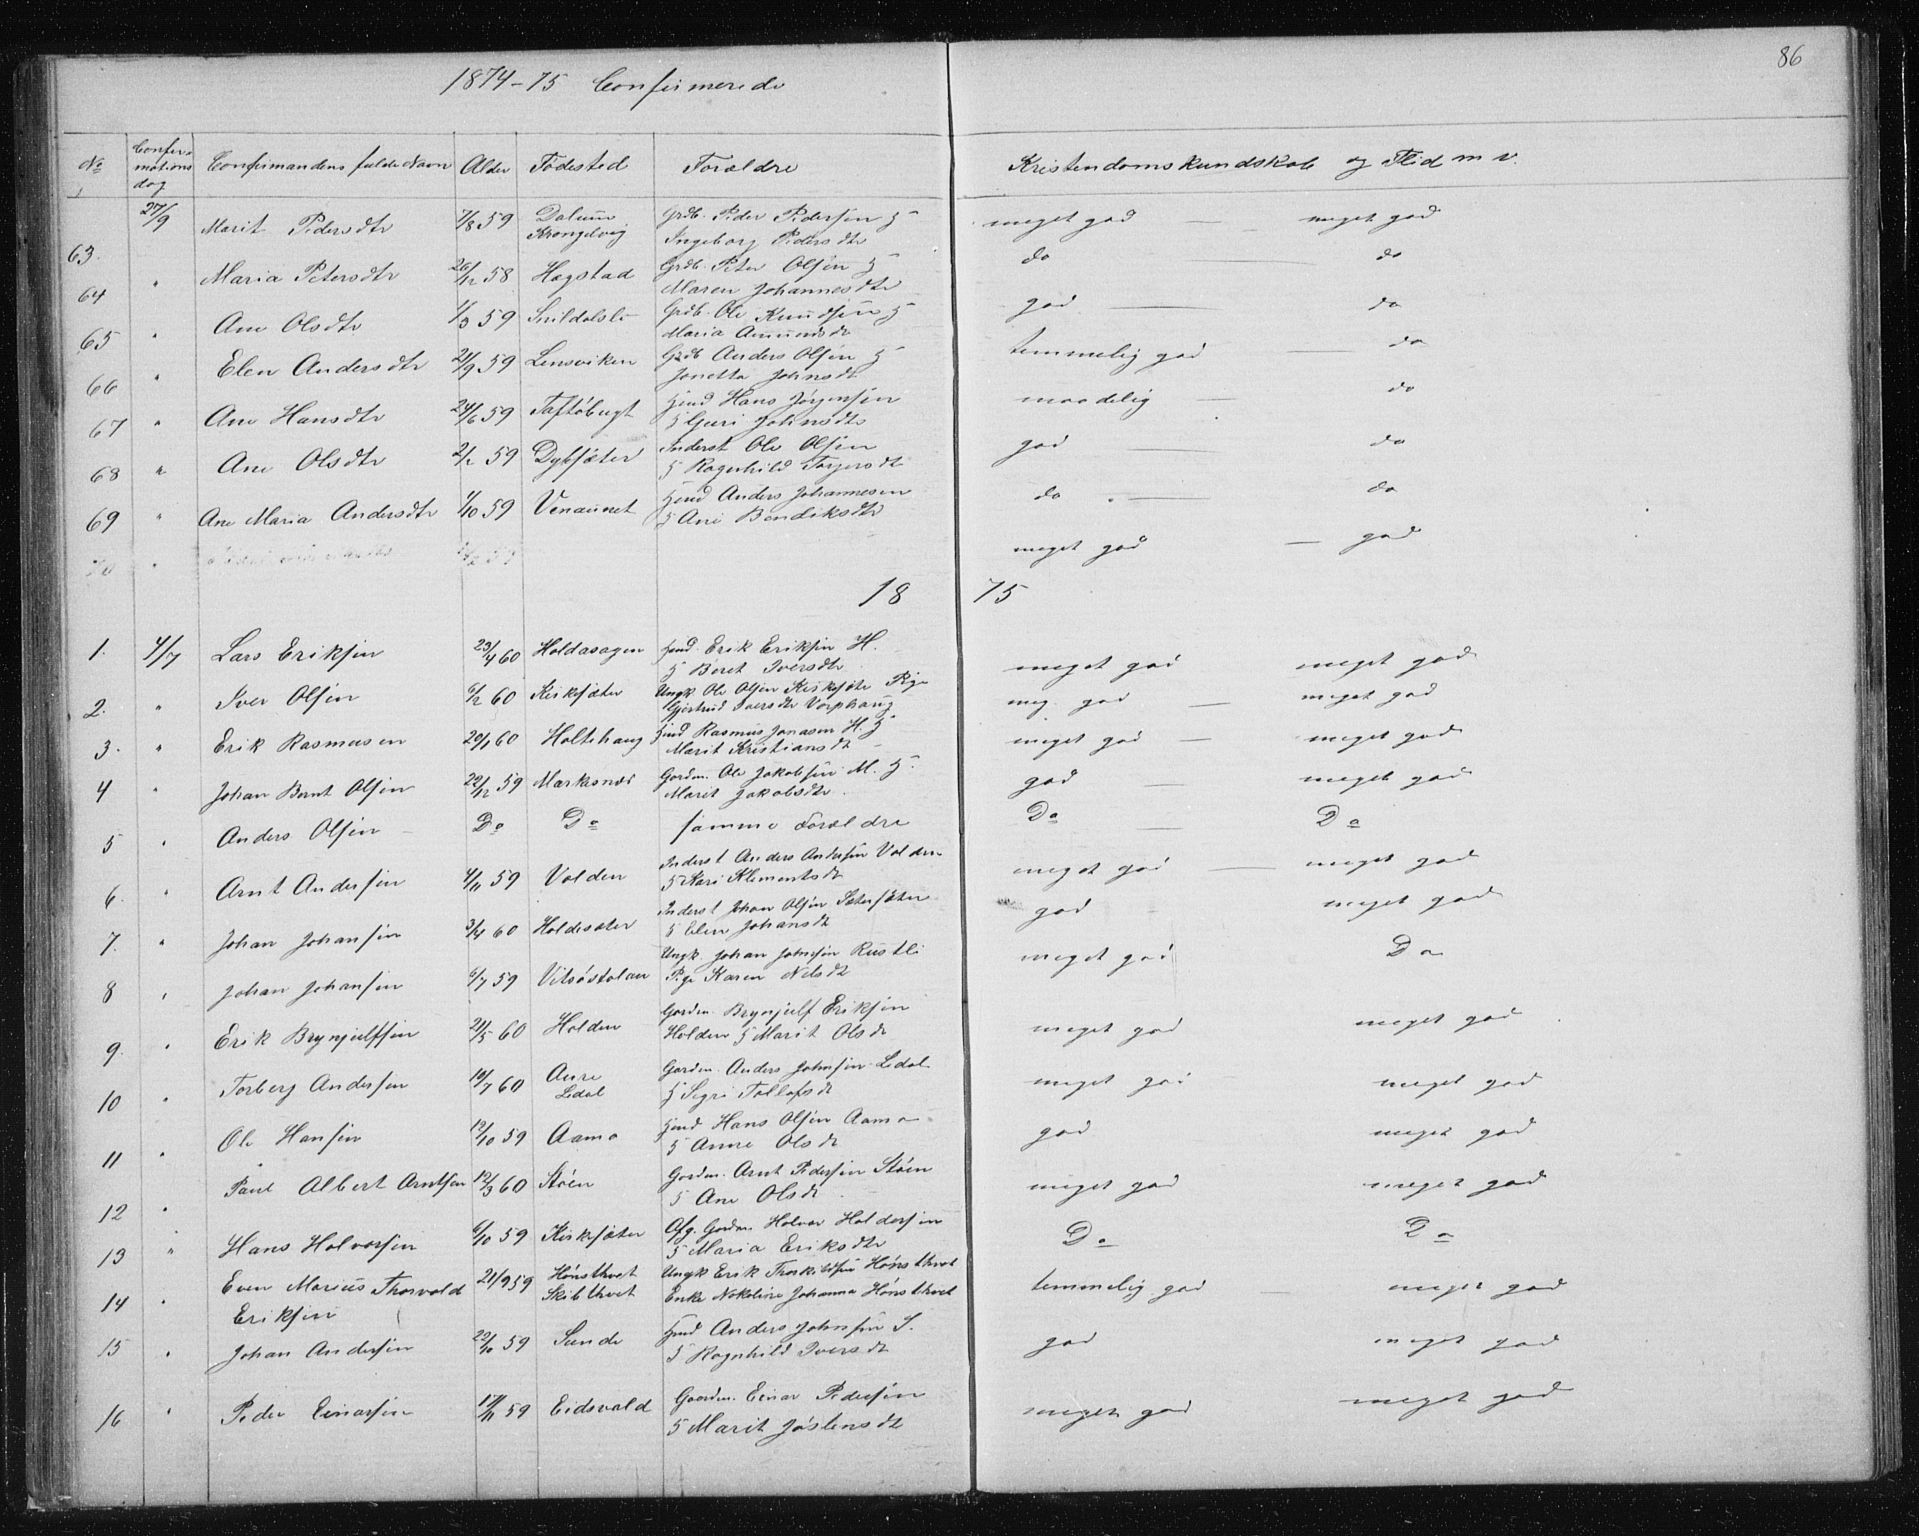 86
1874-75 Confirmerede
No Confirmations dag Confirmandens fulde Navn Alder Födested Forældre Kristendomskundskab og Flid m v.
63. 27/9 Marit Pedersdtr 7/8 59 Dalum Krongelvig Grdb. Peder Pedersen H Ingeborg Pedersdtr meget god — meget god
64 " Maria Petersdtr 26/12 58 Hagstad Grdb. Peter Olsen H Maren Johannesdtr do — do
65 " Ane Olsdtr 1/3 59 Snildalsli Grdb. Ole Knudsen H Maria Amundsdt god — do
66 " Elen Andersdtr 21/9 59 Lensviken Grdb Anders Olsen H Jonetta Johnsdt temmelig god — do
67 " Ane Hansdtr 24/6 59 Taftöbugt Hmd Hans Jörgensen H Guri Johnsdtr maadelig — do
68 " Ane Olsdtr 2/2 59 Dybsæter Inderst Ole Olsen H Ragnhild Torgersdt god — do
69 " Ane Maria Andersdtr 1/10 59 Venaunet Hmd Anders Johannesen H Ane Bendiksdtr do — do
70 " 59 meget god — god
18 75
1. 4/7 Lars Eriksen 23/4 60 Holdasagen Hmd. Erik Eriksen H. H Beret Iversdtr meget god meget god
2. " Iver Olsen 6/2 60 Kirksæter Ungk Ole Olsen Kirksæter Pige Gjertrud Iversdtr Vorphaug meg. god — meget god
3. " Erik Rasmusen 20/1 60 Holtehaug Hmd Rasmus Jonasen H. H Marit Kristiansdt meget god — meget god
4 " Johan Bernt Olsen 22/12 59 Marksnes Gardm. Ole Jakobsen M. H. Marit Jakobsdtr. god — meget god
5 " Anders Olsen — Do Do samme Forældre Do — Do
6. " Arnt Andersen 4/11 59 Volden Inderst Anders Andersen Volden H Kari Klementsdt meget god — meget god
7. " Johan Johansen 3/4 60 Holdesæter Inderst Johan Olsen Sætersæter H Elen Johansdt god — meget god
8 " Johan Johansen 6/7 59 Vitsöstolan Ungk. Johan Johnsen Rustli Pige Karen Nelsdt meget god Do
9. " Erik Brynjulfsen 21/5 60 Holden Gardm. Brynjulf Eriksen Holden H Marit Olsdt meget god meget god
10 " Torberg Andersen 10/7 60 Aure Ledal Gardm. Anders Johnsen Ledal H Segri Tollefsdt meget god meget god
11 " Ole Hansen 12/10 59 Aamo Hmd Hans Olsen Aamo H Anne Olsdt god meget god
12 " Paul Albert Arntsen 12/3 60 Stöen Gardm. Arnt Pedersen Stöen H Ane Olsdt. meget god meget god
13 " Hans Halvorsen 6/10 59 Kirksæter Afg. Gardm. Halvor Haldorsen H Maria Eriksdtr Do Do
14 " Even Marius Thorvald Eriksen 21/9 59 Hönsthvet Skibthvet Ungk Erik Thorkildsen Hönsthvet Enke Nikoline Johanna Hönsthvet temmelig god — meget god
15 " Johan Andersen 22/10 59 Sunde Hmd Anders Johnsen S. H Ragnhild Iversdt god meget god
16 " Peder Einarsen 17/11 59 Eidsvald Gaardm. Einar Pedersen H Marit Jöstensdt meget god meget god